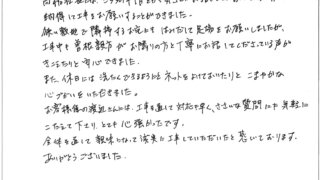 納得して工事をお願いすることができました。
狭い敷地で隣接するお宅にもはみだして足場をお願いしましたが、
工事中も皆様親方がお隣りの方と丁寧にお話ししてくださっている声が
きこえたりと安心できました。
また、休日には洗たくできるようにとネットをよけておいたりと こまやかな
心づかいをいただきました。
お客様係の渡辺さんには、工事を通して対応が早く、ささいな質問にも 気軽に
こたえて下さり、とても心強かったです。
全体を通して気味よく、誠実に工事していただいたと感じております。
ありがとうございました。